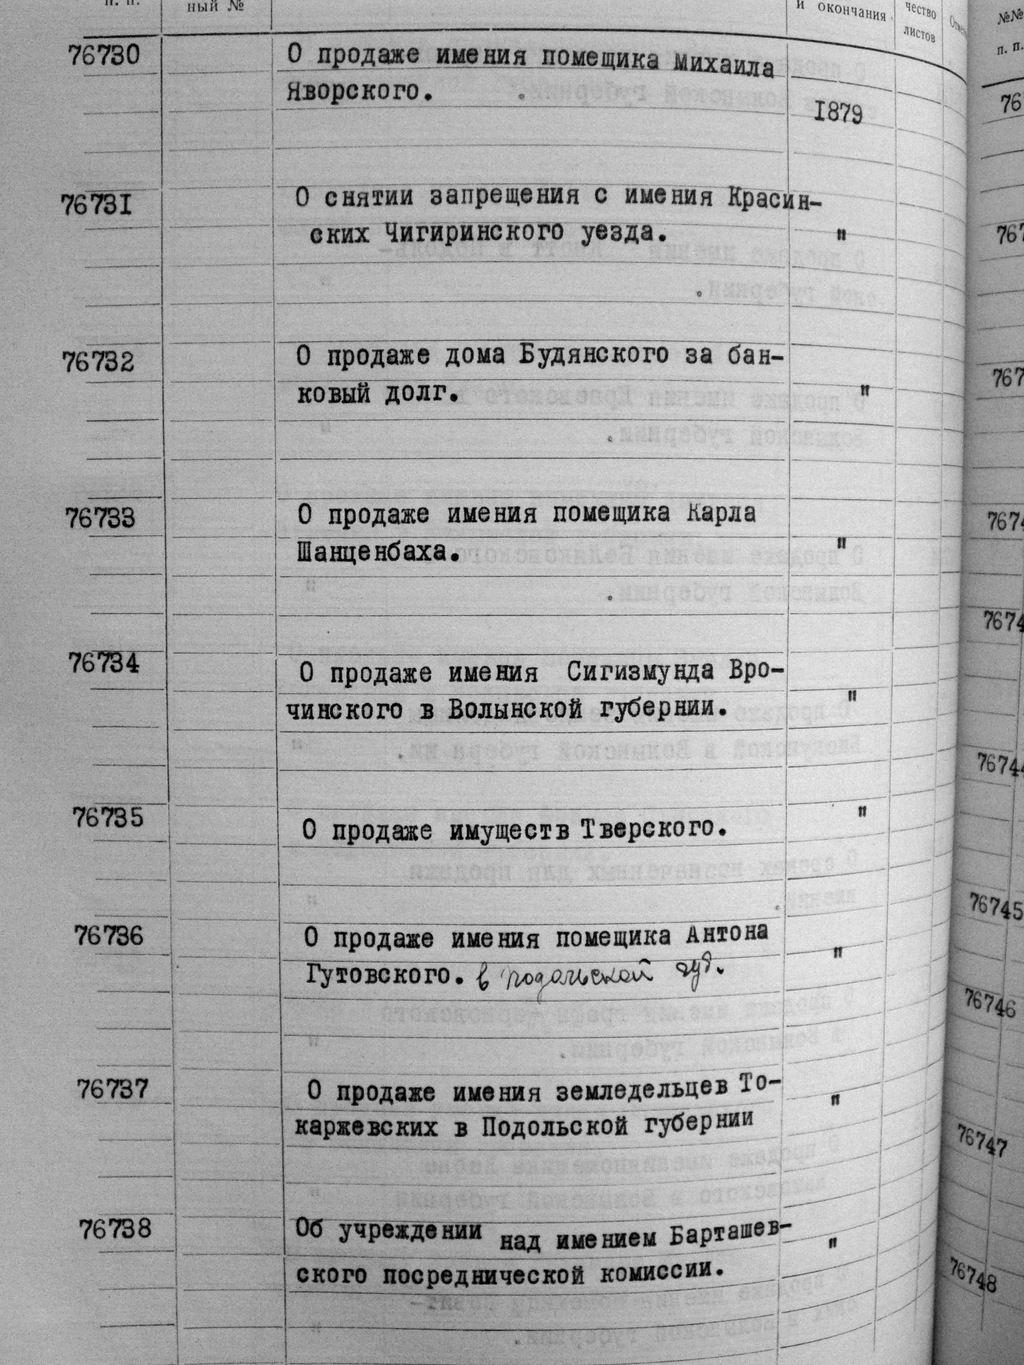 п. п.
ный №
и окончания
чество
листов
№№
п. п.
76730
О продаже имения помещика Михаила
Яворского.
1879
76731
О снятии запрещения с имения Красин-
ских Чигиринского уезда.
"
76732
О продаже дома Будянского за бан-
ковый долг.
"
76733
О продаже имения помещика Карла
Шанценбаха.
"
76734
О продаже имения Сигизмунда Вро-
чинского в Волынской губернии.
"
76735
О продаже имуществ Тверского.
"
76736
О продаже имения помещика Антона
Гутовского. в Подольской губ.
"
76737
О продаже имения земледельцев То-
каржевских в Подольской губернии
"
76738
Об учреждении над имением Барташев-
ского посреднической комиссии.
"
76745
76746
76747
76748